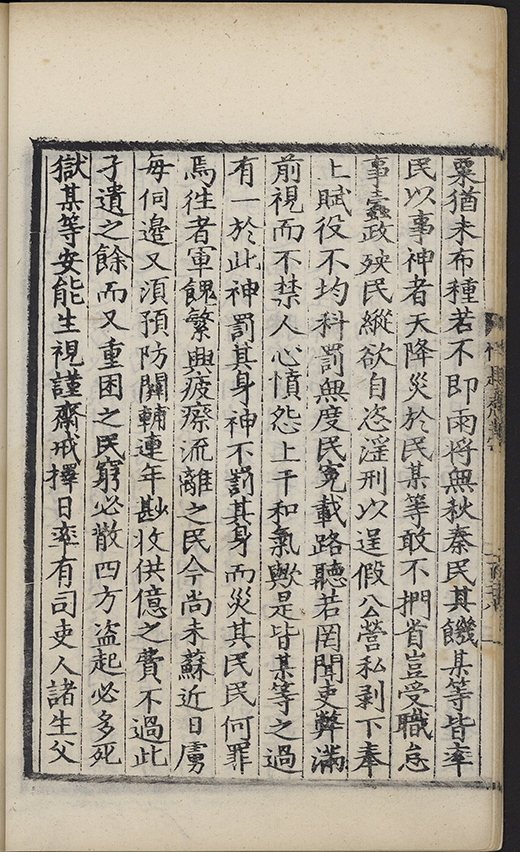 粟猶未布種若不即雨将無秋秦民其饑某等皆率
民以事神者天降災於民某等敢不捫省豈受職怠
事蠹政殃民縱欲自恣滛刑以逞假公營私剥下奉
上賦役不均科罰無度民寃載路聽若罔聞吏弊滿
前視而不禁人心憤怨上干和氣歟是皆某等之過
有一於此神罰其身神不罰其身而災其民民何罪
焉徃者軍餽繁興疲瘵流離之民今尚未蘇近日虜
每伺邉又湏預防關輔連年勘收供億之費不過此
孑遺之餘而又重困之民窮必散四方盗起必多死
獄某等安能生視謹齋戒擇日率有司吏人諸生父